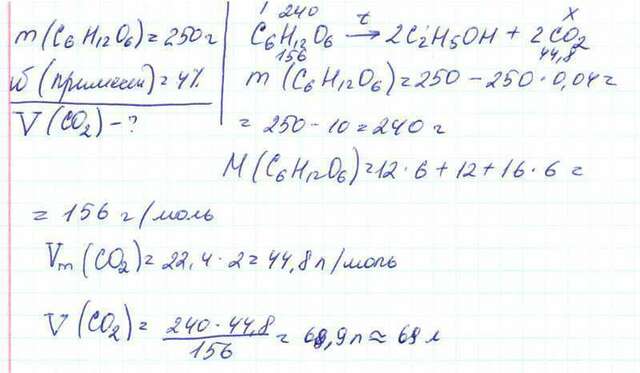 m(C6H12O6)=250г
w(примеси)=4%
V(CO2)-?
1 240 t x
C6H12O6 → 2C2H5OH + 2CO2
156 44,8
m(C6H12O6)=250-250·0,04=
= 250-10=240 г
M(C6H12O6)=12·6+12+16·6=
= 156 г/моль
Vm(CO2)=22,4·2=44,8 л/моль
V(CO2)= 240·44,8/156 = 68,9л ≈ 69 л